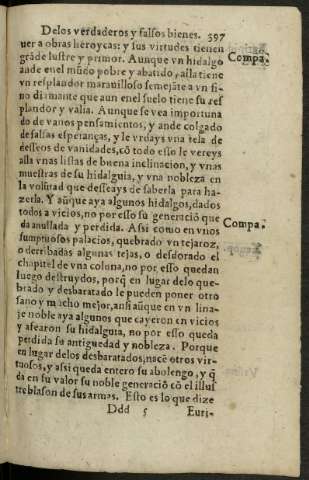 De los verdaderos y falsos bienes. 597
uer a obras heroycas: y sus virtudes tienen
grãde lustre y primor. Aunque vn hidalgo
Compa.
ande en el mũdo pobre y abatido, alla tiene
vn resplandor marauilloso semejãte a vn fi-
no diamante que aun en el suelo tiene su res
plandor y valia. Aunque se vea importuna
do de vanos pensamientos, y ande colgado
de falsas esperanças, y le vrdays vna tela de
desseos de vanidades, cõ todo esso le vereys
alla vnas listas de buena inclinacion, y vnas
muestras de su hidalguia, y vna nobleza en
la volũtad que desseays de saberla para ha-
zerla. Y aũque aya algunos hidalgos, dados
todos a vicios, no por esso su generaciõ que
Compa.
da anullada y perdida. Assi como en vnos
sumptuosos palacios, quebrado vn tejaroz,
o derribadas algunas tejas, o desdorado el
chapitel de vna coluna, no por esso quedan
luego destruydos, porq̃ en lugar de lo que-
brado y desbaratado le pueden poner otro
sano y mucho mejor, ansi aũque en vn lina-
je noble aya algunos que cayeron en vicios
y afearon su hidalguia, no por esso queda
perdida su antiguedad y nobleza. Porque
en lugar delos desbaratados, nacẽ otros vir-
tuosos, y assi queda entero su abolengo, y q̃
da en su valor su noble generaciõ cõ el illus
tre blason de sus armas. Esto es lo que dize
Ddd 5 Euri-